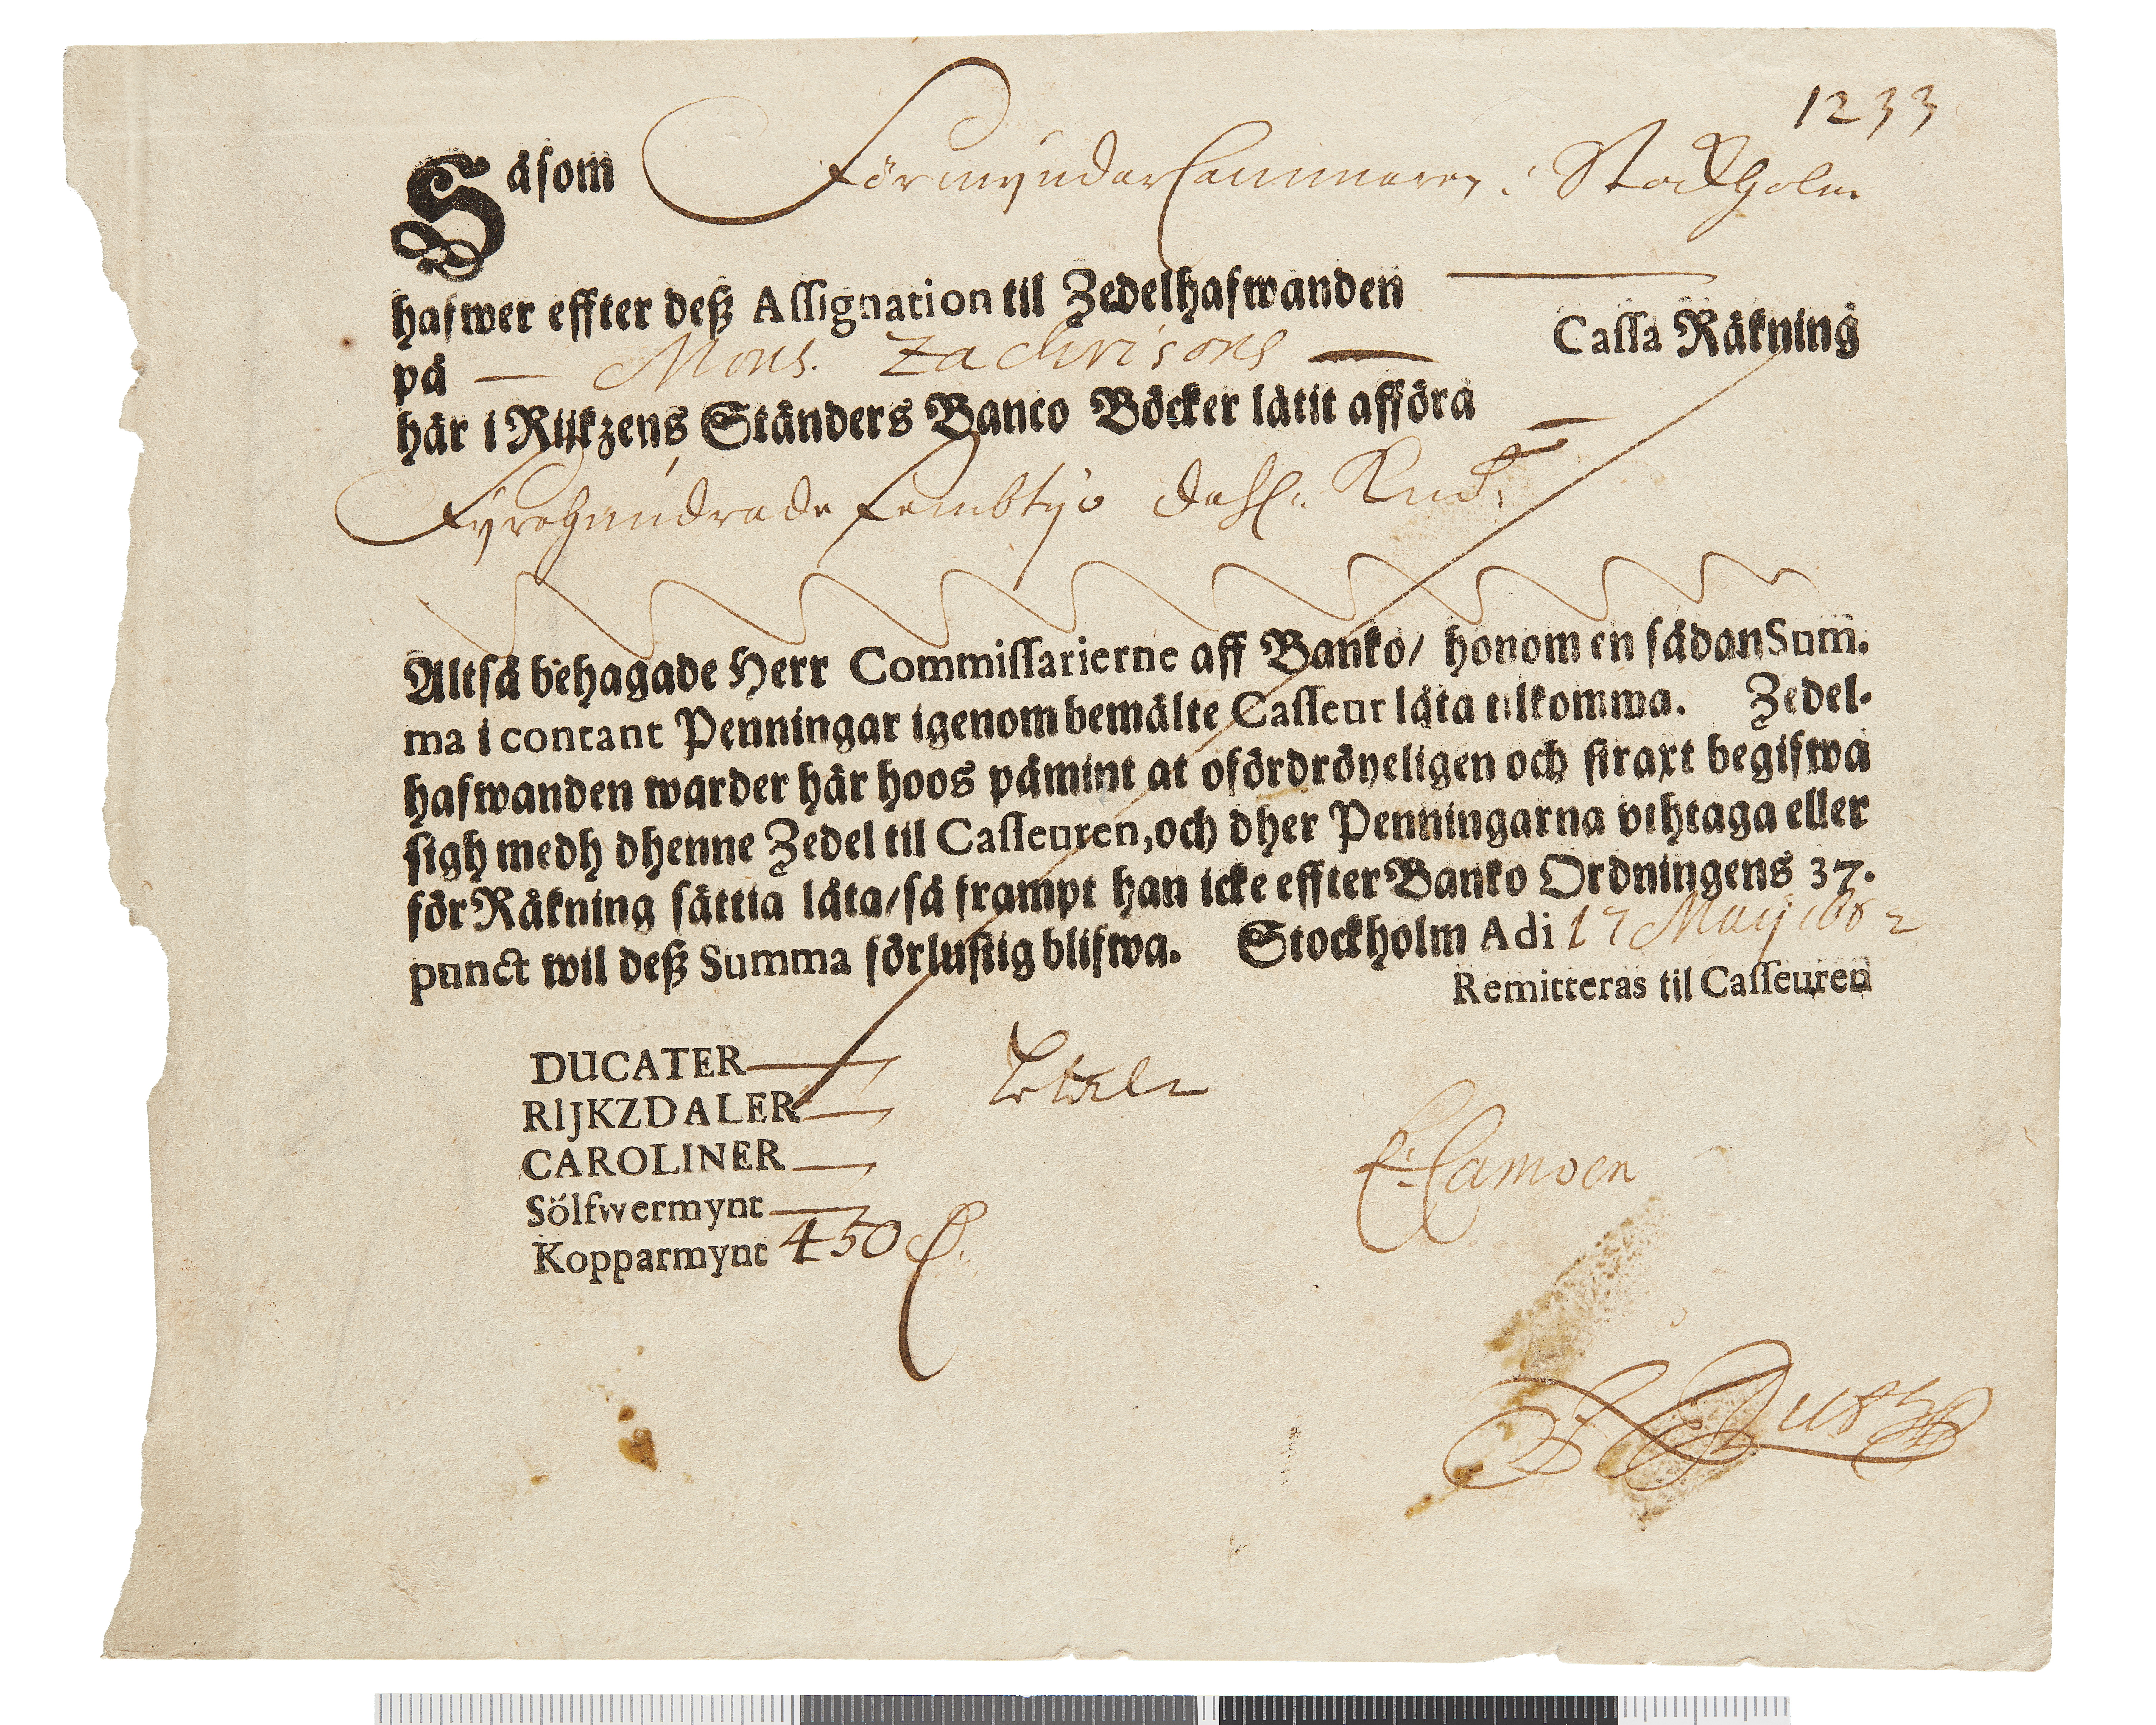 1233
Såsom Förmyndar Cammaren i Stockholm
hafwer effter deß Assignation til Zedelhafwanden
på — Mons. Zachrisons — Cassa Räkning
här i Rijkzens Ständers Banco Böcker låtit afföra
Fyrahundrade fembtijo dahl. Kmt.
Altså behagade Herr Commissarierne aff Banko/ honom en sådan Sum-
ma i contant Penningar igenom bemälte Casseur låta tilkomma. Zedel-
hafwanden warder här hoos påmint at ofördröyeligen och straxt begifwa
sigh medh dhenne Zedel til Casseuren, och dher Penningarna vthtaga eller
för Räkning sättia låta/ så frampt han icke effter Banko Ordningens 37.
punct wil deß Summa förlustig blifwa. Stockholm Adi 17 Maij 1682
Remitteras til Casseuren
DUCATER
RIJKZDALER
CAROLINER
Sölfwermynt
Kopparmynt 450
Camoen